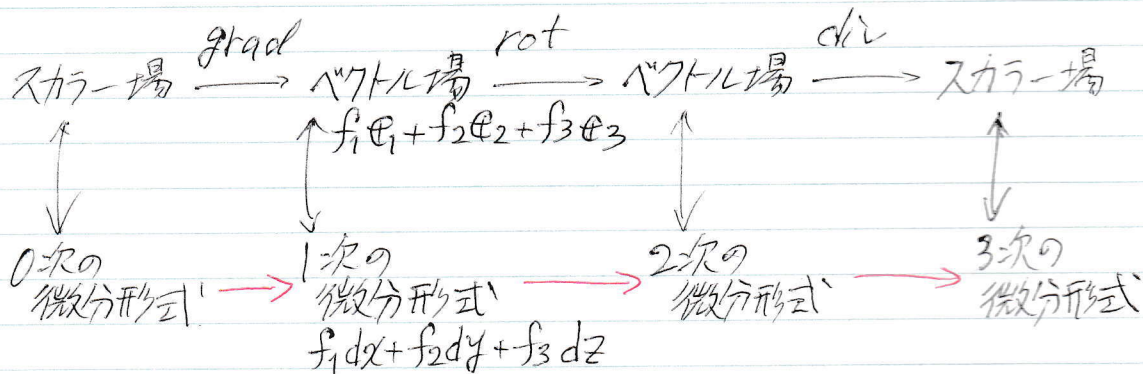 grad rot div
スカラー場 → ベクトル場 → ベクトル場 → スカラー場
f₁e₁+f₂e₂+f₃e₃
0次の 1次の 2次の 3次の
微分形式 → 微分形式 → 微分形式 → 微分形式
f₁dx+f₂dy+f₃dz